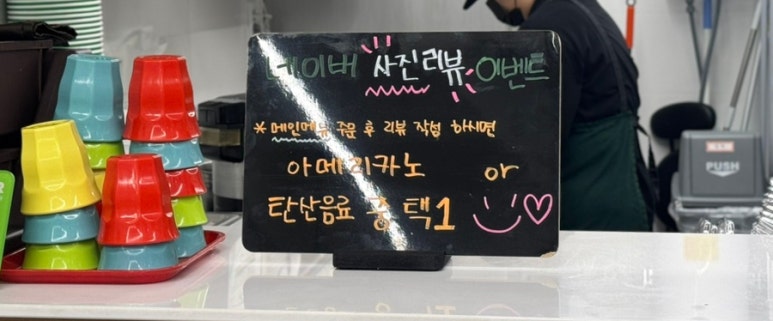 네이버 사진리뷰 이벤트
* 메인메뉴 주문 후 리뷰 작성 하시면
아메리카노 or
탄산음료 중 택1
PUSH